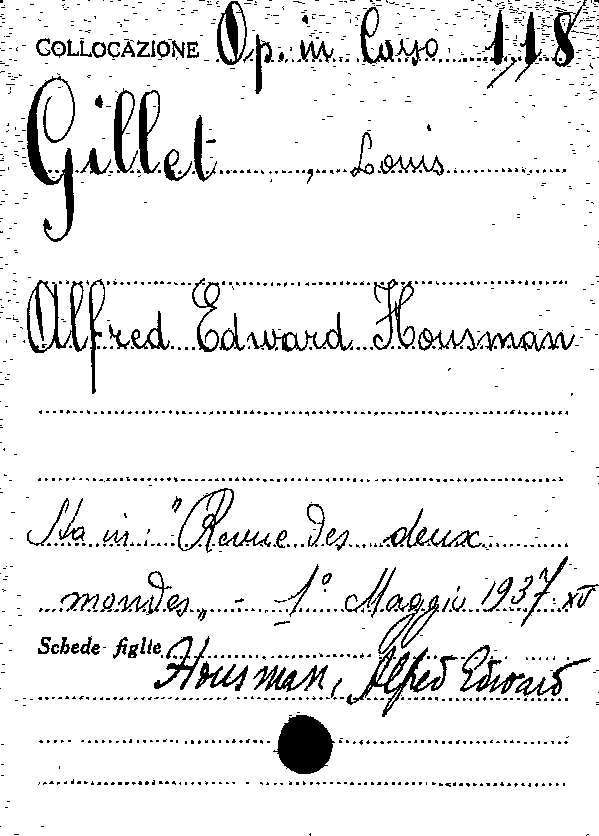 COLLOCAZIONE Op. in Corso 118
Gillet, Louis
Alfred Edward Housman
Sta in: "Revue des deux
mondes" - 1° Maggio 1937. XV
Schede figlie Housman, Alfred Edward